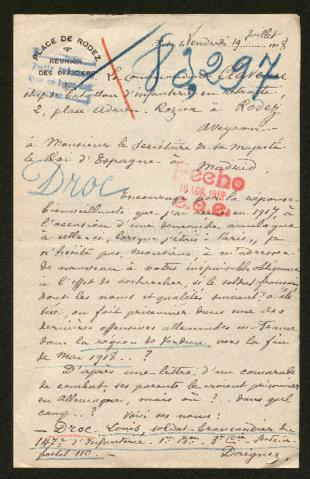 PLACE DE RODEZ
RÉUNION
DES OFFICIERS
Vendredi 19 Juillet 1918
83297
Le Commandant
chef de bataillon d'infanterie en retraite,
2, place Adrien Rozier à Rodez
Aveyron
à Monsieur le Secrétaire de Sa Majesté
le Roi d'Espagne à Madrid
Droc
Fecho
10 AGO. 1918
Encouragé par la réponse
bienveillante que j'ai reçue en 1917, à
l'occasion d'une demande analogue
à celle-ci, lorsque j'étais à Paris, je
n'hésite pas, Monsieur, à m'adresser
de nouveau à votre inépuisable obligeance
à l'effet de rechercher, si le soldat français
dont les noms et qualités suivent a été
tué, ou fait prisonnier dans une des
dernières offensives allemandes en France
dans la région de Verdun, vers la fin
de Mai 1918..?
D'après une lettre d'un camarade
de combat, ses parents le croient prisonnier
en Allemagne, mais où ?.. dans quel
camp..? Voici ses noms:
— Droc, Louis, soldat brancardier du
147e d'Infanterie. 1er Bon 3e Cie Secteur
postal 110 —